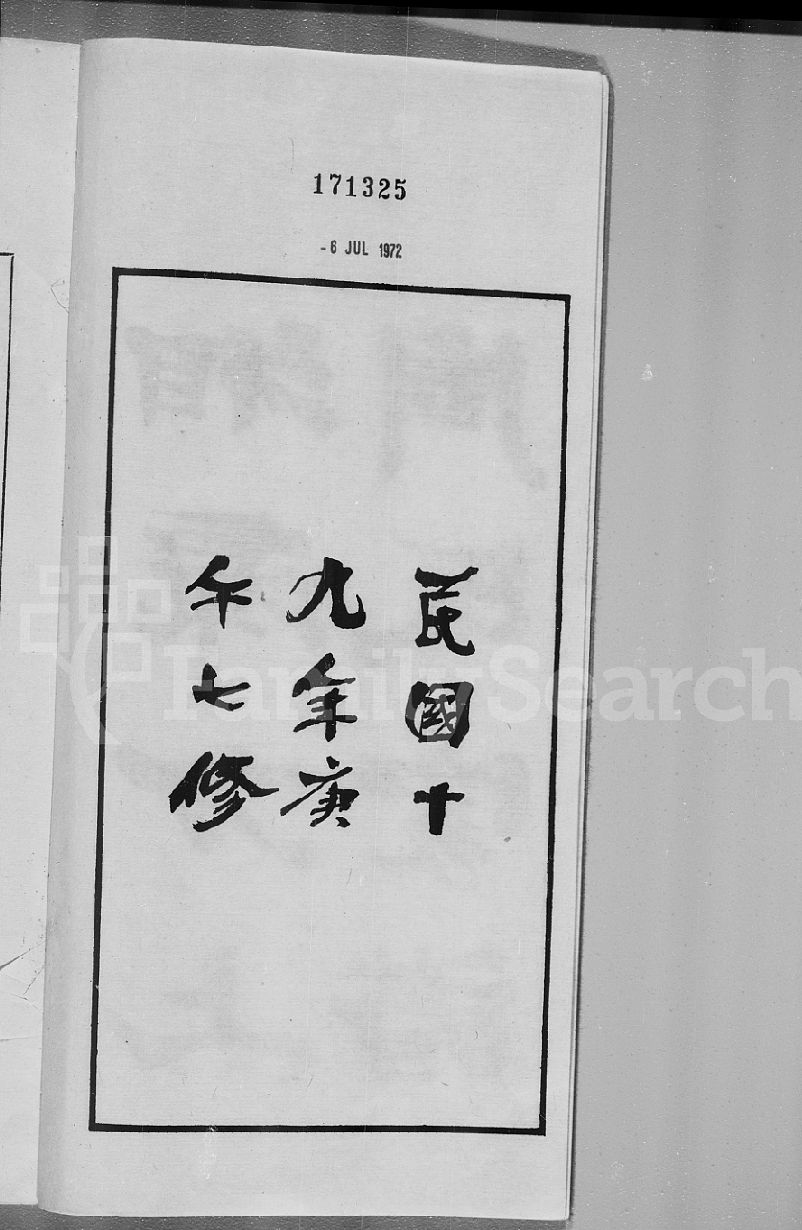 171325
- 6 JUL 1972
民國十
九年庚
午七修
FamilySearch